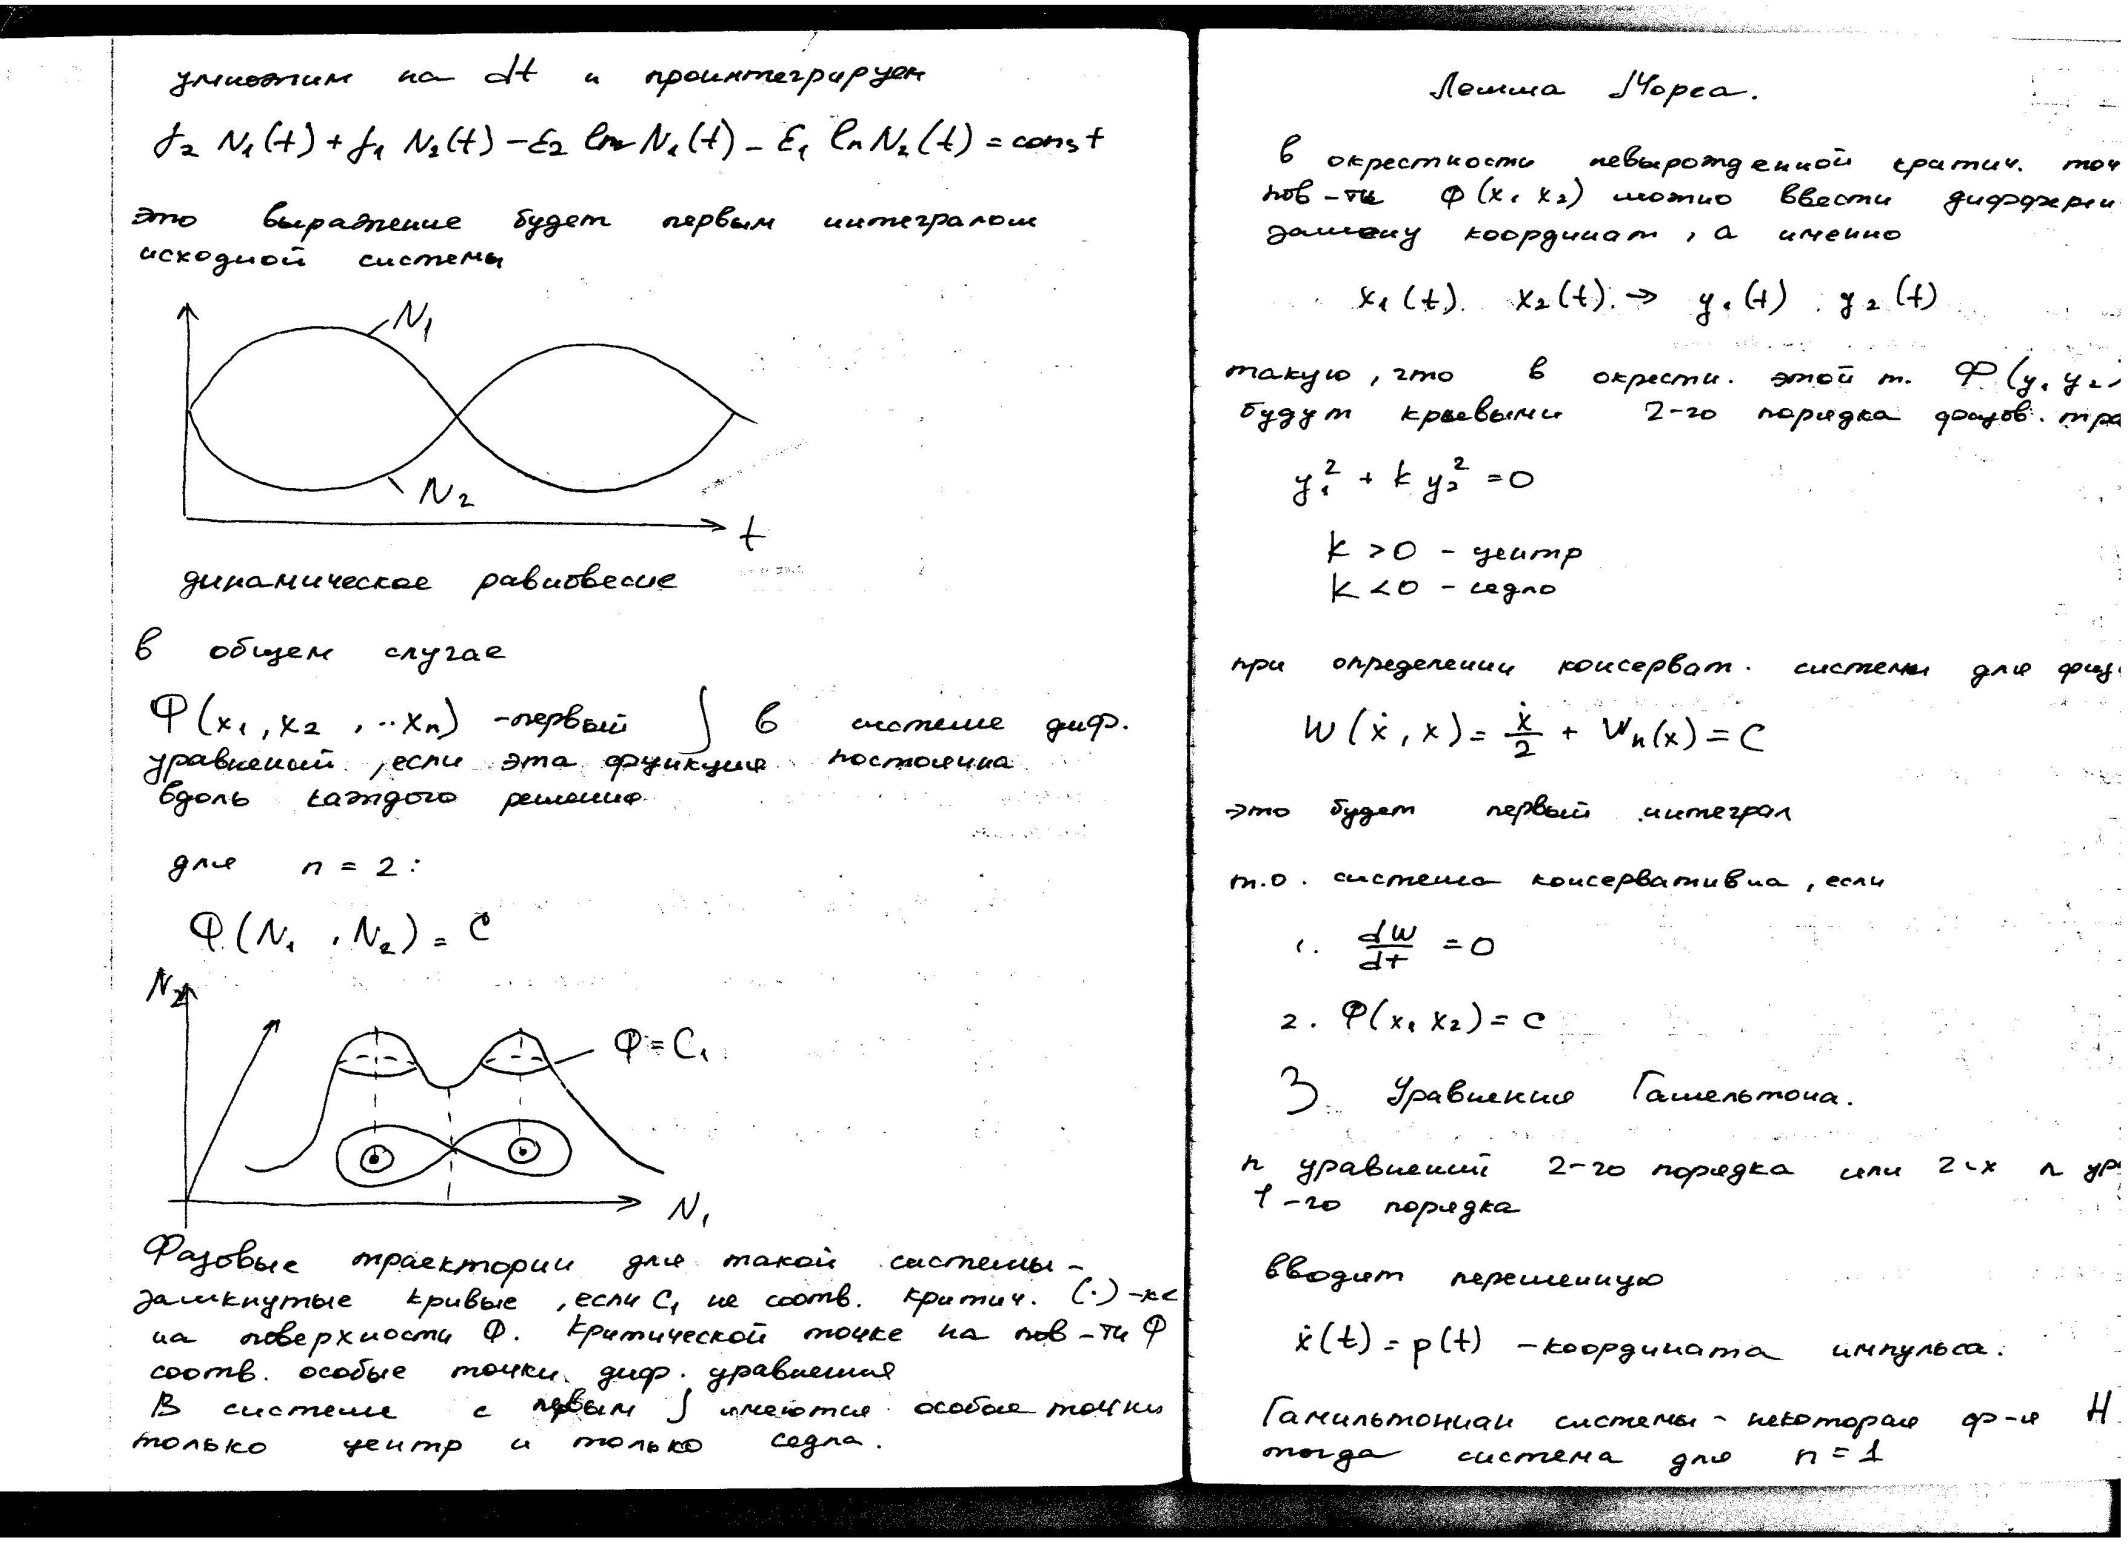 умножим на dt и проинтегрируем
γ₂ N₁(t) + γ₁ N₂(t) − ε₂ ln N₁(t) − ε₁ ln N₂(t) = const
это выражение будет первым интегралом
исходной системы
N₁
N₂
t
динамическое равновесие
в общем случае
Φ(x₁, x₂, ..xₙ) - первый ∫ в системе диф.
уравнений, если эта функция постоянна
вдоль каждого решения
для n = 2:
Φ(N₁, N₂) = C
N₂
Φ = C₁
N₁
Фазовые траектории для такой системы -
замкнутые кривые, если C₁ не соотв. критич. (·)-ке
на поверхности Φ. Критической точке на пов-ти Φ
соотв. особые точки диф. уравнения
В системе с первым ∫ имеются особые точки
только центр и только седла.
Лемма Морса.
В окрестности невырожденной критич. точ
пов-ти Φ(x₁ x₂) можно ввести дифферен
замену координат, а именно
x₁(t) x₂(t) → y₁(t) y₂(t)
такую, что в окрестн. этой т. Φ(y₁ y₂)
будут кривыми 2-го порядка фазов. тра
y₁² + k y₂² = 0
k > 0 - центр
k < 0 - седло
при определении консерват. системы для физ
W(ẋ, x) = ẋ/2 + Wₙ(x) = C
это будет первый интеграл
т.о. система консервативна, если
1. dW/dt = 0
2. Φ(x₁ x₂) = C
3. Уравнение Гамельтона.
n уравнений 2-го порядка или 2-х n ур
1-го порядка
вводит переменную
ẋ(t) = p(t) - координата импульса.
Гамильтониан системы - некоторая ф-я H
тогда система для n = 1